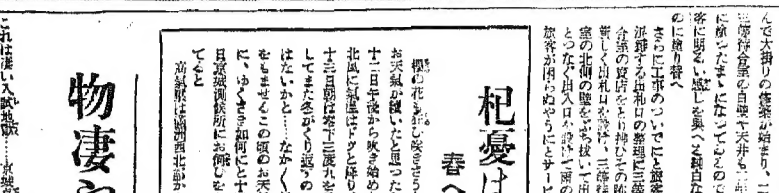 んで大掛りの修築が始まり、一
三等待合室の白壁や天井も一年
に塗つたまゝになつてゐるので
客に明るい感じを與へる純白な
のに塗り替へ
さらに工事のついでに旅客
混雜する出札口の整理に三等
合室の賣店をとり拂ひその跡
新しく出札口を設け、三等待
室の北側の壁をぶち拔いて出
とつなぐ出入口を設けて雨の
旅客が困らぬやうにとサービ
杞憂は
春へ
櫻の花も悲し咲きさう
お天氣が續いたと思つた
十二日午後から吹き始め
北風に氣溫はドツと降り
十三日朝は零下三度九を
してまた冬がくり返すの
はないかと…なか〳〵
をもませるこの頃のお天
に、ゆくさき如何にと十
日京城測候所にお伺ひを
てると
高氣壓は滿洲西北部か
物凄
これは凄い入試地獄…京城